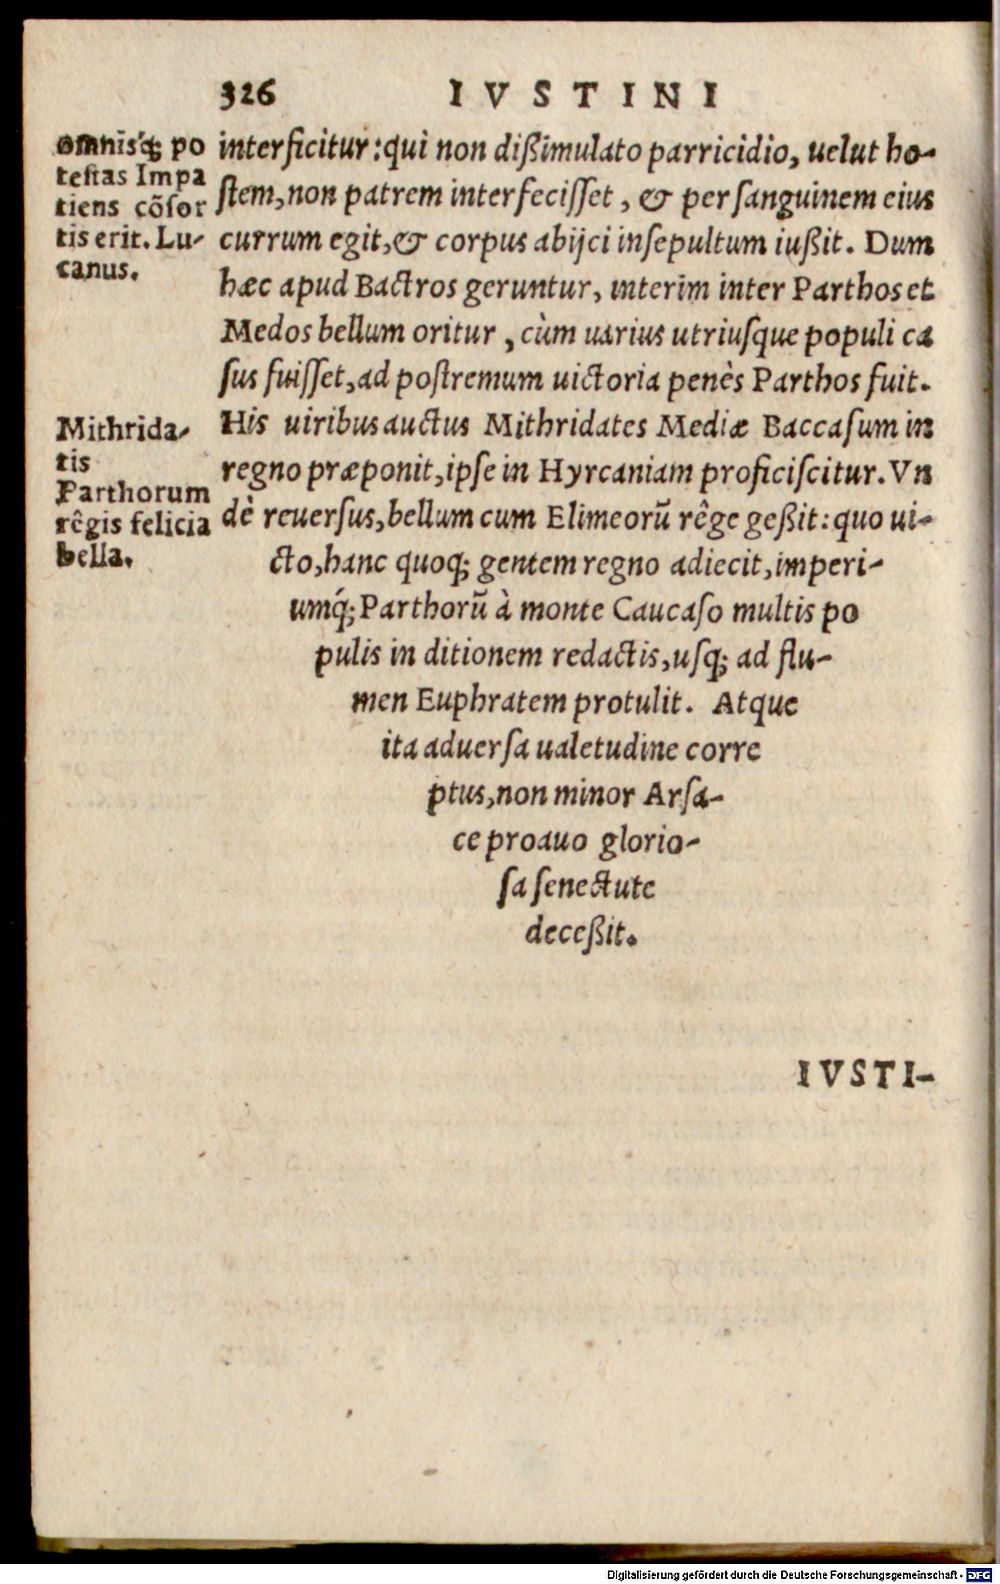 326 IVSTINI
omnis'q; po
testas Impa
tiens cõsor
tis erit. Lu-
canus.
interficitur: qui non dißimulato parricidio, uelut ho-
stem, non patrem interfecisset, & per sanguinem eius
currum egit, & corpus abijci insepultum iußit. Dum
hæc apud Bactros geruntur, interim inter Parthos et
Medos bellum oritur, cùm uarius utriusque populi ca
sus fuisset, ad postremum uictoria penès Parthos fuit.
Mithrida-
tis
Parthorum
rêgis felicia
bella.
His uiribus auctus Mithridates Mediæ Baccasum in
regno præponit, ipse in Hyrcaniam proficiscitur. Vn
dè reuersus, bellum cum Elimeorũ rêge geßit: quo ui-
cto, hanc quoq; gentem regno adiecit, imperi-
umq́; Parthorũ à monte Caucaso multis po
pulis in ditionem redactis, usq; ad flu-
men Euphratem protulit. Atque
ita aduersa ualetudine corre
ptus, non minor Arsa-
ce proauo glorio-
sa senectute
deceßit.
IVSTI-
Digitalisierung gefördert durch die Deutsche Forschungsgemeinschaft - DFG